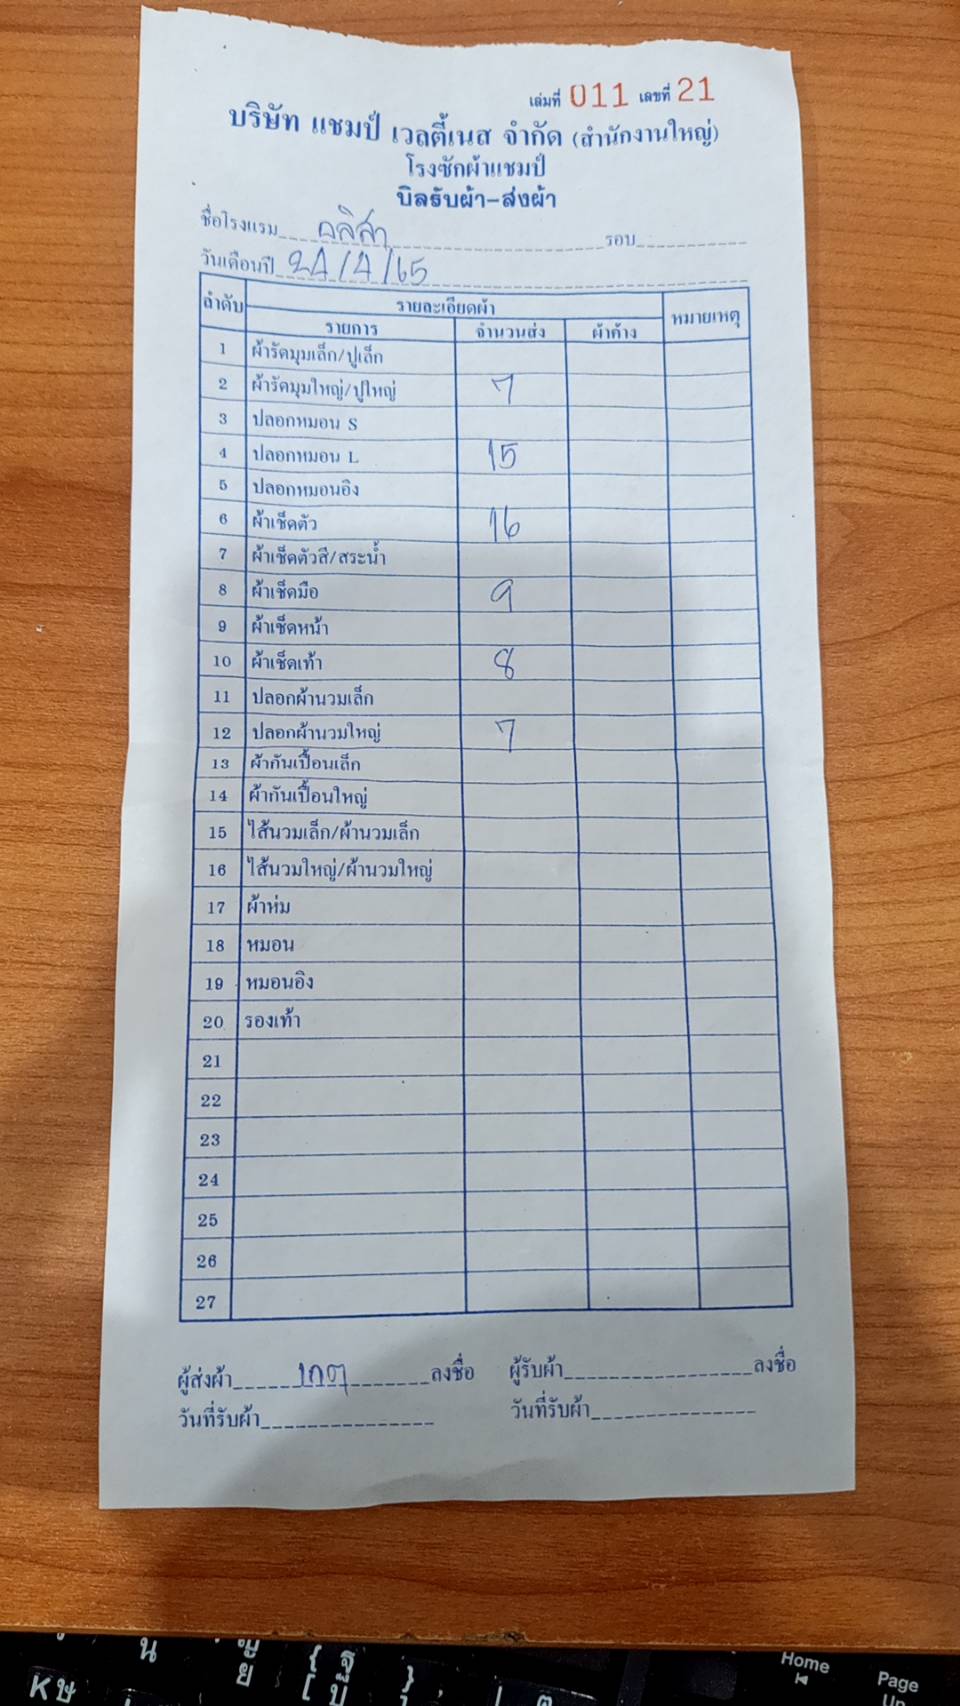 เล่มที่ 011 เลขที่ 21
บริษัท แชมป์ เวลตี้เนส จำกัด (สำนักงานใหญ่)
โรงซักผ้าแชมป์
บิลรับผ้า-ส่งผ้า
ชื่อโรงแรม อลิสา รอบ
วันเดือนปี 24/4/65
ลำดับ รายละเอียดผ้า หมายเหตุ
รายการ จำนวนส่ง ผ้าค้าง
1 ผ้ารัดมุมเล็ก/ปูเล็ก
2 ผ้ารัดมุมใหญ่/ปูใหญ่ 7
3 ปลอกหมอน S
4 ปลอกหมอน L 15
5 ปลอกหมอนอิง
6 ผ้าเช็ดตัว 16
7 ผ้าเช็ดตัวสี/สระน้ำ
8 ผ้าเช็ดมือ 9
9 ผ้าเช็ดหน้า
10 ผ้าเช็ดเท้า 8
11 ปลอกผ้านวมเล็ก
12 ปลอกผ้านวมใหญ่ 7
13 ผ้ากันเปื้อนเล็ก
14 ผ้ากันเปื้อนใหญ่
15 ไส้นวมเล็ก/ผ้านวมเล็ก
16 ไส้นวมใหญ่/ผ้านวมใหญ่
17 ผ้าห่ม
18 หมอน
19 หมอนอิง
20 รองเท้า
21
22
23
24
25
26
27
ผู้ส่งผ้า ลงชื่อ ผู้รับผ้า ลงชื่อ
วันที่รับผ้า วันที่รับผ้า
Home
Page
K ษ